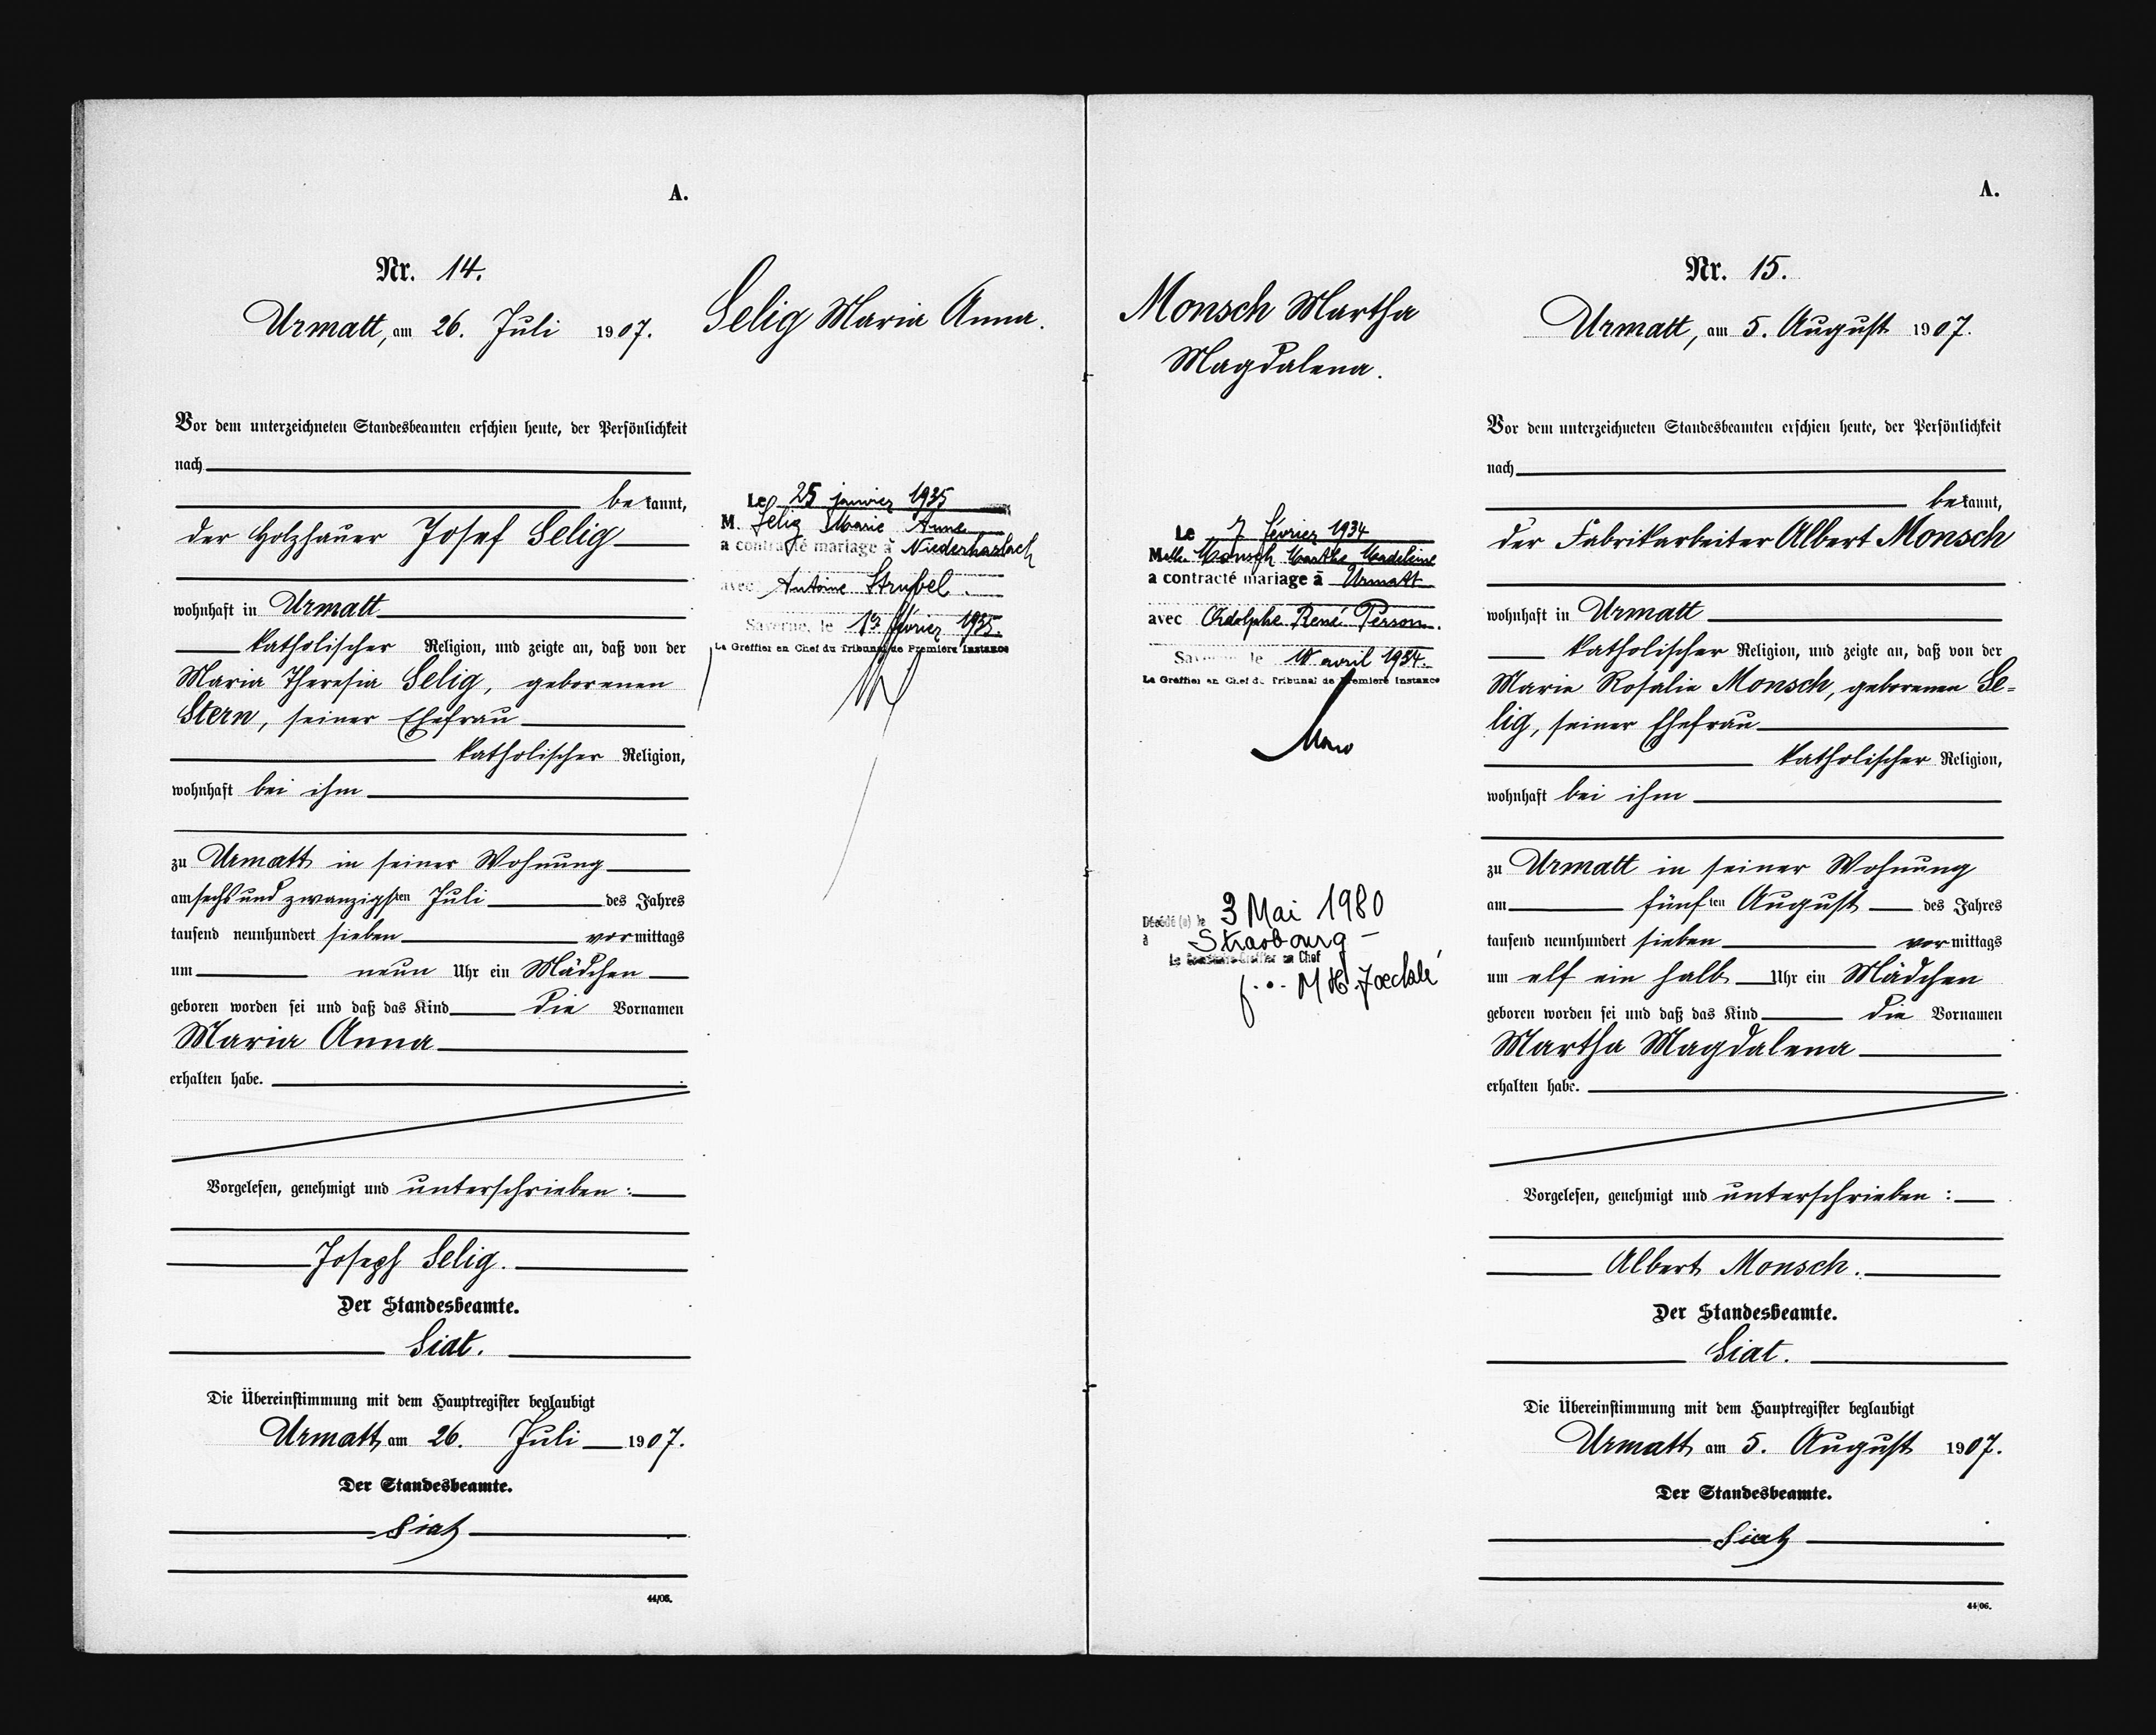 A.
Nr. 14.
Urmatt, am 26. Juli 1907.
Selig Maria Anna.
Vor dem unterzeichneten Standesbeamten erschien heute, der Persönlichkeit
nach
bekannt,
der Holzhauer Josef Selig
wohnhaft in Urmatt
katholischer Religion, und zeigte an, daß von der
Maria Theresia Selig, geborenen
Stern, seiner Ehefrau
katholischer Religion,
wohnhaft bei ihm
zu Urmatt in seiner Wohnung
am sechs und zwanzigsten Juli des Jahres
tausend neunhundert sieben vormittags
um neun Uhr ein Mädchen
geboren worden sei und daß das Kind die Vornamen
Maria Anna
erhalten habe.
Vorgelesen, genehmigt und unterschrieben:
Joseph Selig.
Der Standesbeamte.
Siat.
Die Übereinstimmung mit dem Hauptregister beglaubigt
Urmatt am 26. Juli 1907.
Der Standesbeamte.
Siat
44/06.
Le 25 janvier 1935
M. Selig Marie Anne
a contracté mariage à Niederhaslach
avec Antoine Strubel.
Saverne, le 1er février 1935.
Le Greffier en Chef du Tribunal de Premiere Instance
A.
Nr. 15.
Urmatt, am 5. August 1907.
Monsch Martha
Magdalena.
Le 7 février 1934
Melle. Monsch Marthe Madeleine
a contracté mariage à Urmatt
avec Adolphe René Person.
Saverne le 10 avril 1934.
Le Greffier en Chef du Tribunal de Premiere Instance
Décédé (e) le 3 Mai 1980
à Strasbourg -
Greffier en Chef
Vor dem unterzeichneten Standesbeamten erschien heute, der Persönlichkeit
nach
bekannt,
der Fabrikarbeiter Albert Monsch
wohnhaft in Urmatt
katholischer Religion, und zeigte an, daß von der
Maria Rosalia Monsch, geborenen Se=
lig, seiner Ehefrau
katholischer Religion,
wohnhaft bei ihm
zu Urmatt in seiner Wohnung
am fünften August des Jahres
tausend neunhundert sieben vormittags
um elf ein halb Uhr ein Mädchen
geboren worden sei und daß das Kind die Vornamen
Martha Magdalena
erhalten habe.
Vorgelesen, genehmigt und unterschrieben:
Albert Monsch.
Der Standesbeamte.
Siat.
Die Übereinstimmung mit dem Hauptregister beglaubigt
Urmatt am 5. August 1907.
Der Standesbeamte.
Siat
44/06.